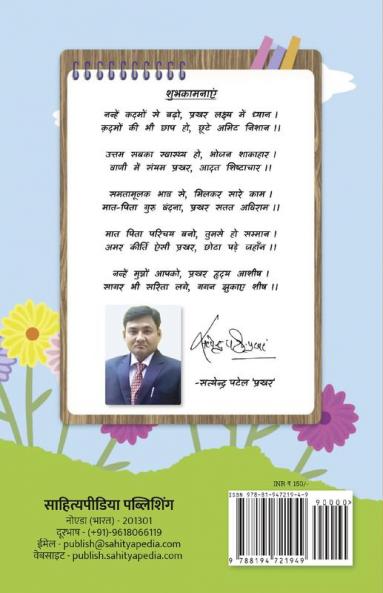 शुभकामनाएं
नन्हें कदमों से बढ़ो, प्रखर लक्ष्य में ध्यान ।
क़दमों की भी छाप हो, छूटे अमिट निशान ।।
उत्तम सबका स्वास्थ्य हो, भोजन शाकाहार ।
वाणी में संयम प्रखर, आदत शिष्टाचार ।।
समतामूलक भाव से, मिलकर सारे काम ।
मात-पिता गुरु वंदना, प्रखर सतत अविराम ।।
मात पिता परिचय बनो, तुमसे हो सम्मान ।
अमर कीर्ति ऐसी प्रखर, छोटा पड़े जहाँन ।।
नन्हें मुन्नों आपको, प्रखर हृदय आशीष ।
सागर भी सरिता लगे, गगन झुकाए शीष ।।
-सत्येन्द्र पटेल 'प्रखर'
साहित्यपीडिया पब्लिशिंग
नोएडा (भारत) - 201301
दूरभाष - (+91)-9618066119
ईमेल - publish@sahityapedia.com
वेबसाइट - publish.sahityapedia.com
INR ₹ 150/-
ISBN 978-81-947219-4-9
90000>
9 788194 721949